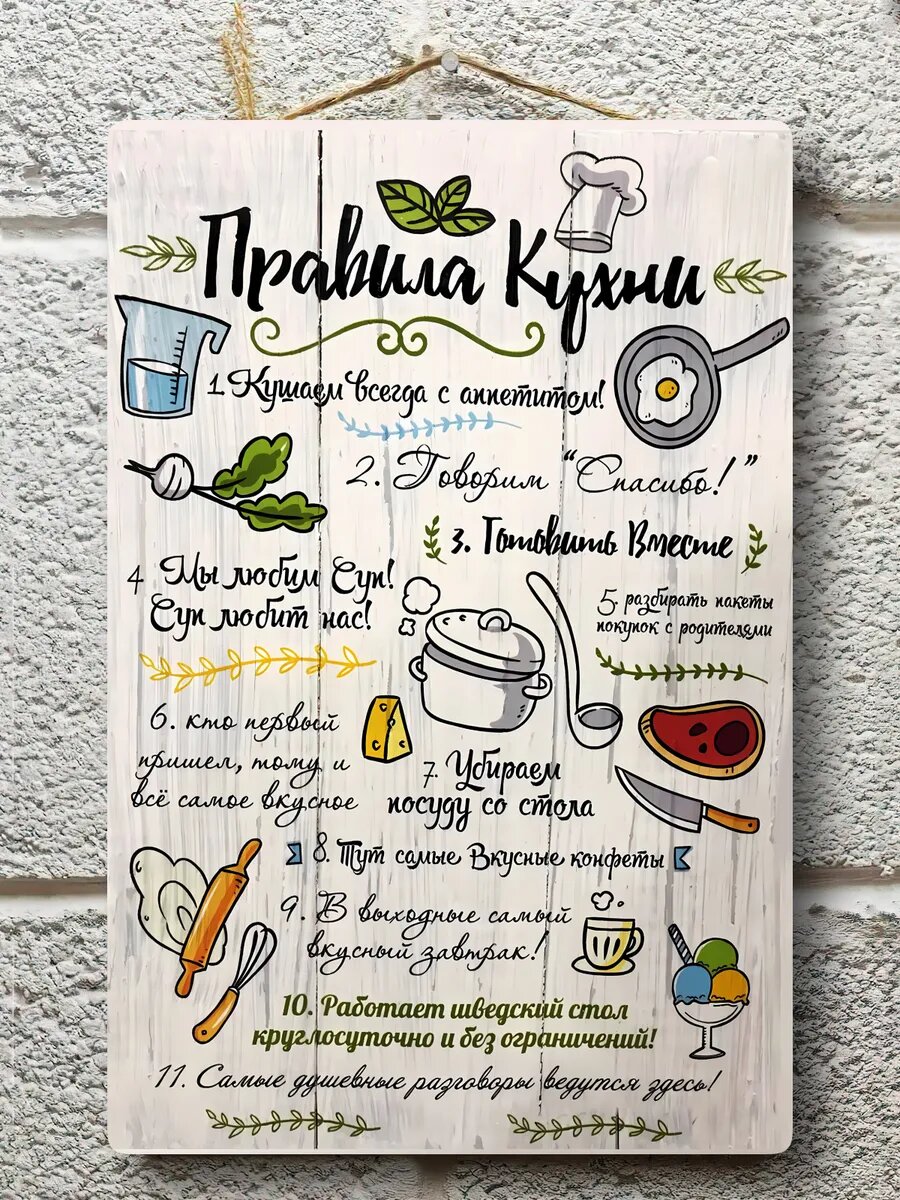 Правила Кухни
1. Кушаем всегда с аппетитом!
2. Говорим "Спасибо!"
3. Готовить Вместе
4 Мы любим Суп!
Суп любит нас!
5. разбирать пакеты
покупок с родителями
6. кто первый
пришел, тому и
всё самое вкусное
7. Убираем
посуду со стола
8. Тут самые Вкусные конфеты
9. В выходные самый
вкусный завтрак!
10. Работает шведский стол
круглосуточно и без ограничений!
11. Самые душевные разговоры ведутся здесь!